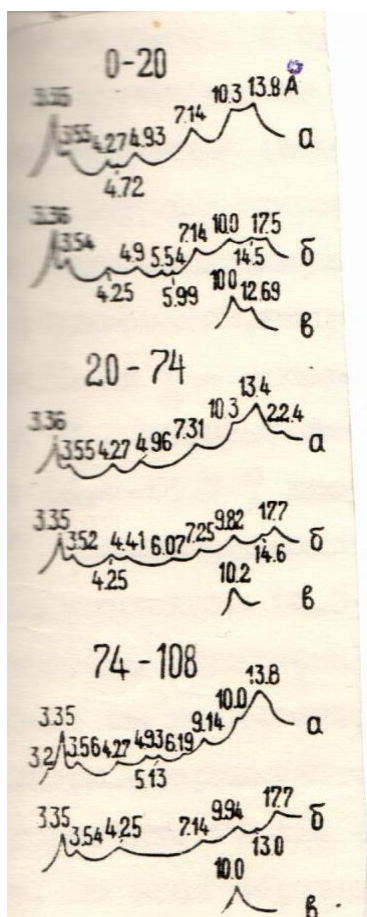 0-20
3.35 3.55 4.27 4.93 7.14 10.3 13.8 Å
4.72
а
3.36 3.54 4.9 5.54 7.14 10.0 17.5
4.25 5.99 14.5
б
10.0 12.69
в
20-74
3.36 3.55 4.27 4.96 7.31 10.3 13.4 22.4
а
3.35 3.52 4.41 6.07 7.25 9.82 17.7
4.25 14.6
б
10.2
в
74-108
3.35 10.0 13.8
3.2 3.56 4.27 4.93 6.19 9.14
5.13
а
3.35 3.54 4.25 7.14 9.94 17.7
13.0
б
10.0
в